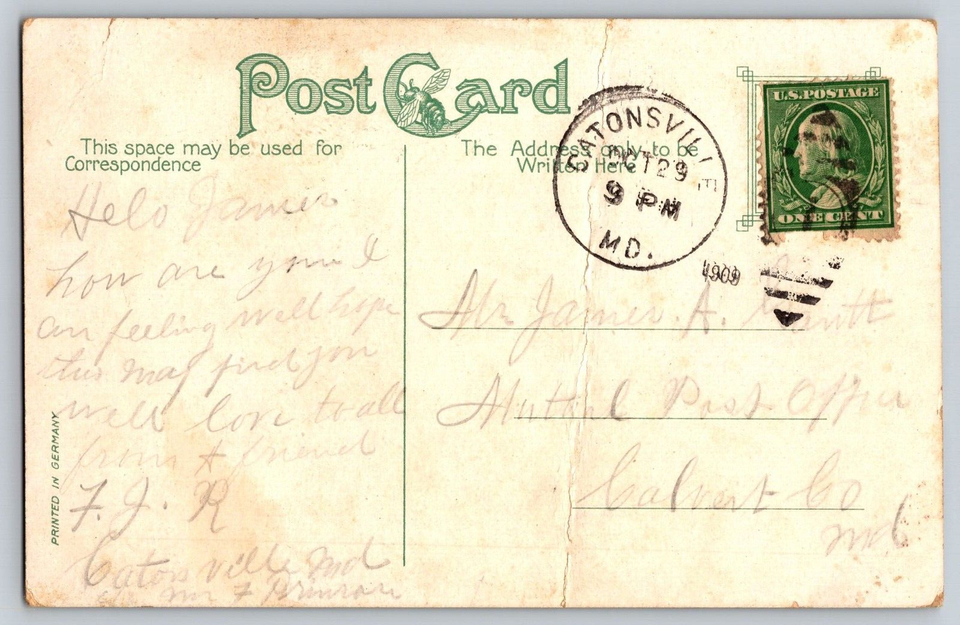 Post Card
This space may be used for
Correspondence
The Address only to be
Written Here
CATONSVILLE
OCT 29
9 PM
MD.
1909
U.S. POSTAGE
ONE CENT
Helo James
how are you I
am feeling well hope
this may find you
well love to all
from a friend
F. J. R
Catonsville Md
Mr James A.
Mutual Post Office
Calvert Co
Md
PRINTED IN GERMANY